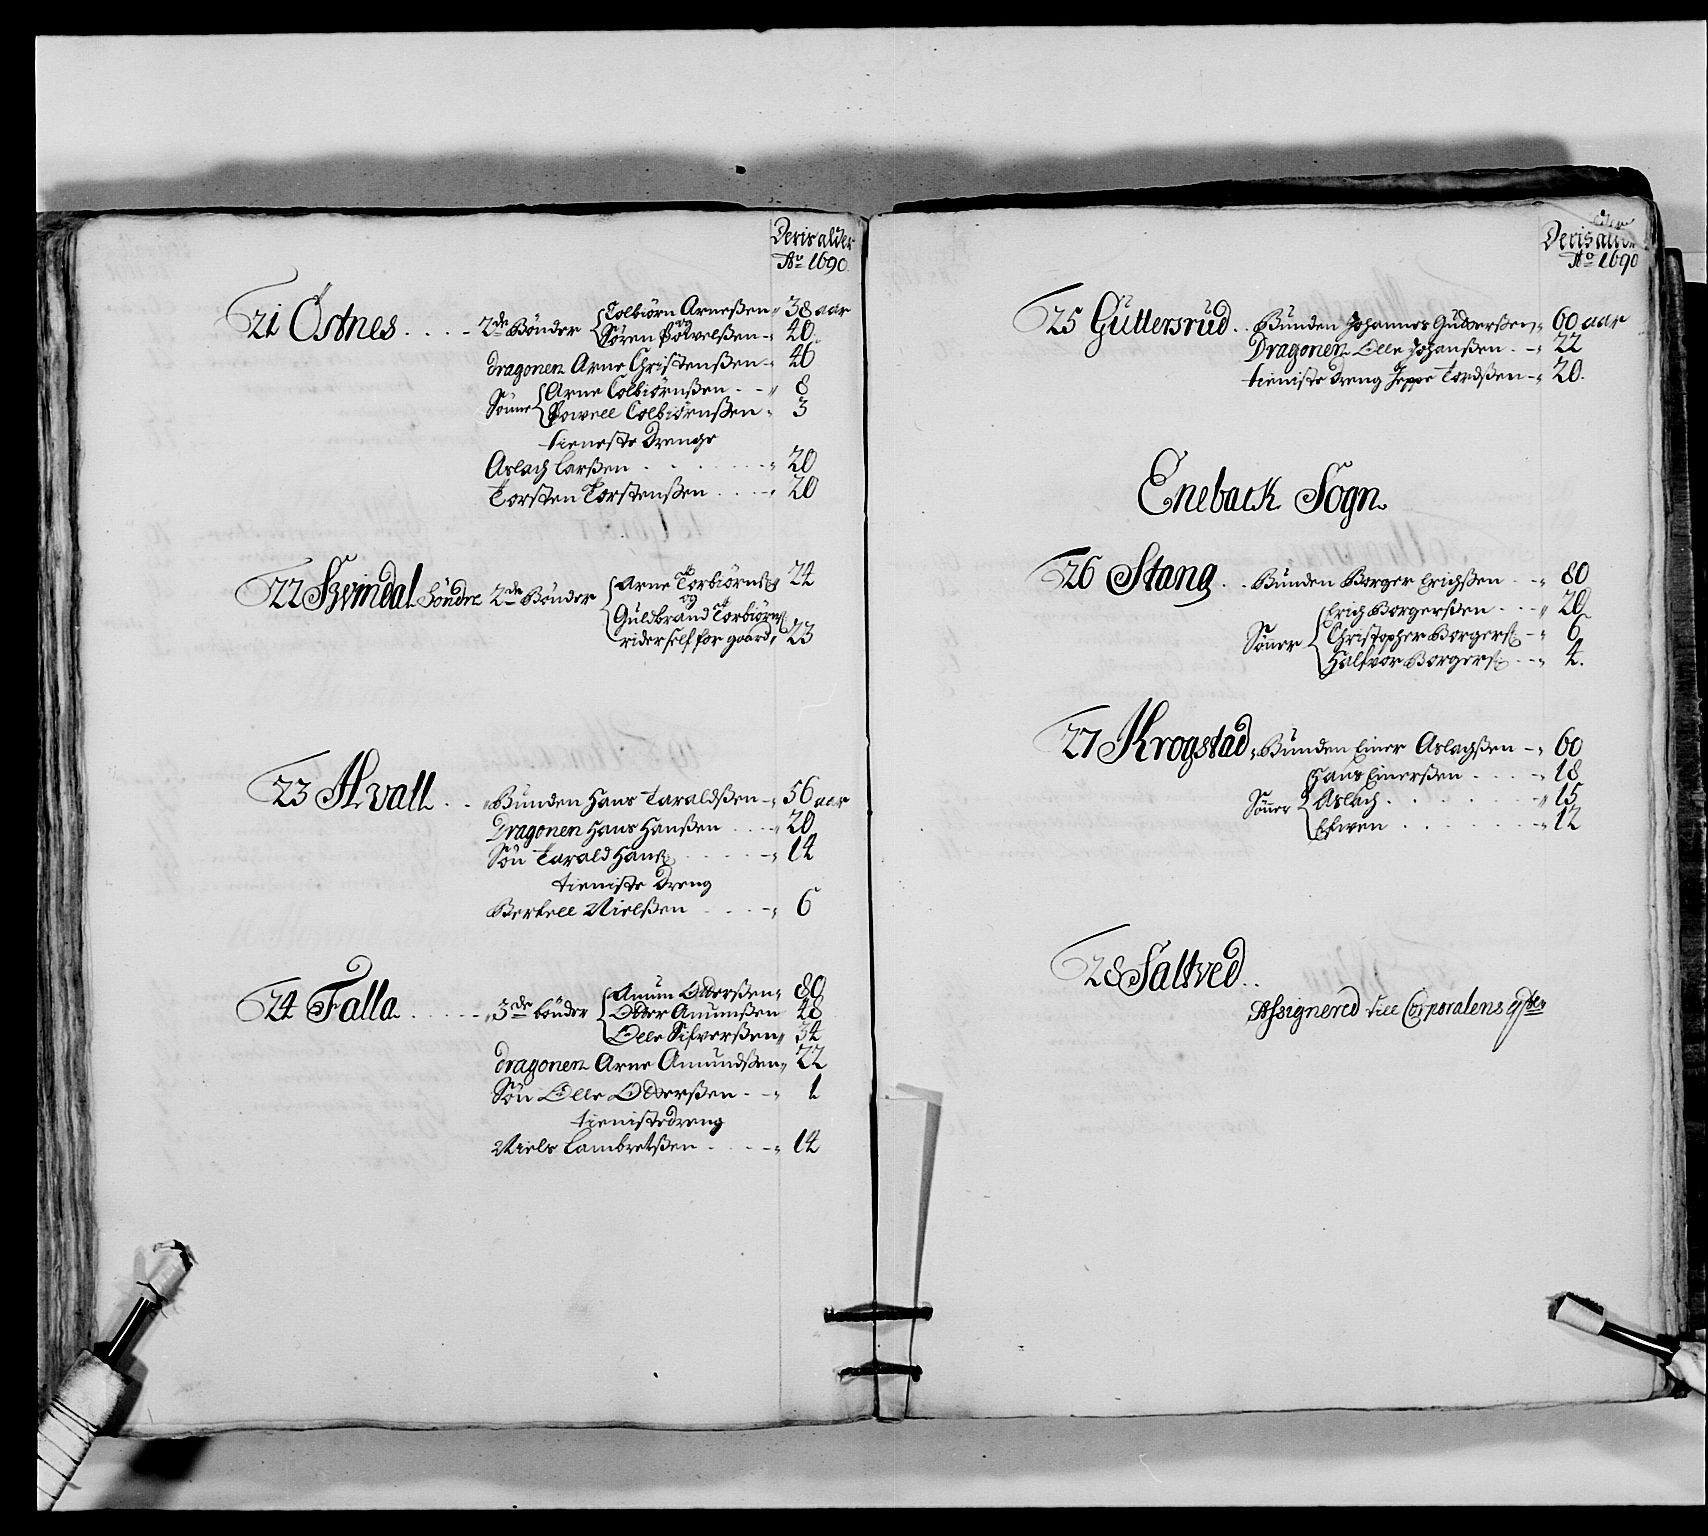 Deris alder
Aō 1690.
21 Östnes. . . . 2de Bönder Colbiörn Arneßen 38 aar
og
Sören Powelßen 40
dragonen Arne Christenßen 46
Sönne Arne Colbiörnßen . . 8
Powell Colbiörnßen 3
tieneste Drenge
Aslach Larßen . . . . . 20
Torsten Torstenßen . . . . 20
22 Svindal Söndre 2de Bönder Arne Torbiörnß 24
og
Guldbrand Torbiörnß
rider self for gaard 23
23 Alvall . . Bunden Hans Taraldßen 56 aar
Dragonen Hans Hanßen . . . . 20
Sön Tarald Hanß . . . . . 14
tieniste Dreng
Bertell Nielßen . . . . 6
24 Falla . . . . . 3de bönder Amun Odderßen 80
Odder Amunßen 48
Olle Silverßen 34
dragonen Arne Amundßen 22
Sön Olle Odderßen . . 1
tienistedreng
Niels Lambretßen . . . . 14
Deris alder
Aō 1690
25 Guttersrud . . Bunden Johannes Gudderßen 60 aar
Dragonen Olle Johanßen . . 22
tieniste Dreng Jeppe Tordßen 20.
Eneback Sogn.
26 Stang . . Bunden Borger Erichßen . . 80
Erich Borgerßen . . . 20
Sönner Christopher Borgerß 6
Halfvor Borgerß . . 4.
27 Krogstad, Bunden Einer Aslachßen 60
Hans Einerßen . . . . 18
Sönner Aslach . . . . . . . 15
Efwen . . . . . . 12
28 Saltved . .
Assignered till Corporalens